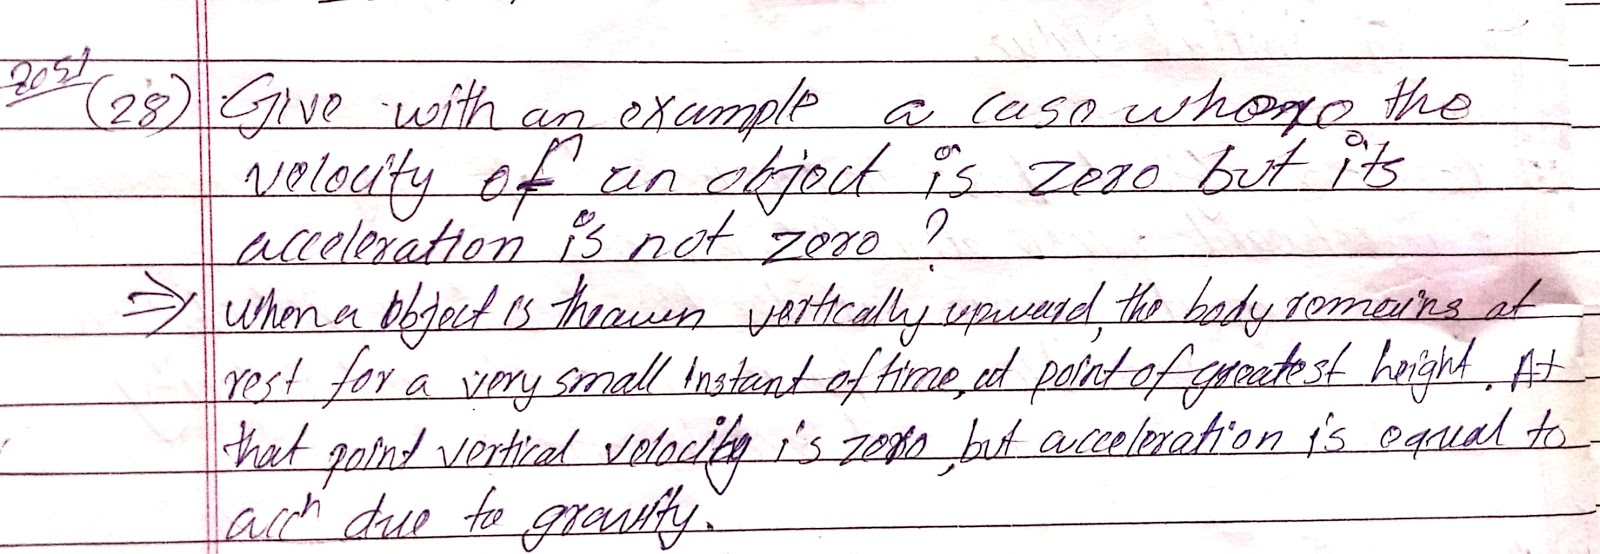 2051
(28) Give with an example a case where the
velocity of an object is zero but its
acceleration is not zero ?
⇒ When a object is thrown vertically upward, the body remains at
rest for a very small instant of time, at point of greatest height. At
that point vertical velocity is zero, but acceleration is equal to
accⁿ due to gravity.